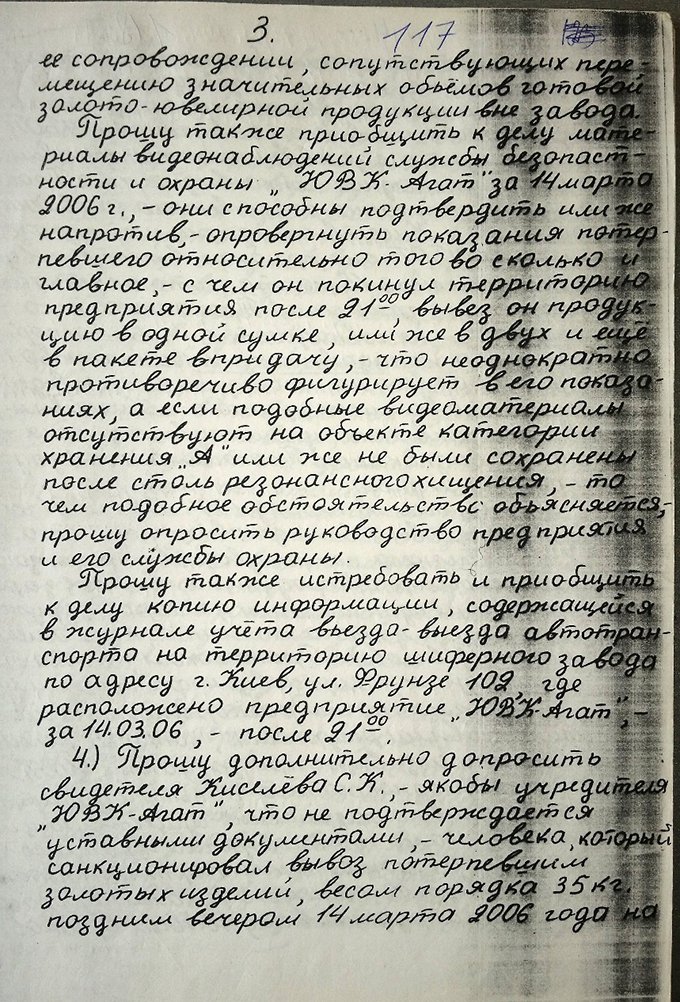 3. 117
ее сопровождении, сопутствующих пере-
мещению значительных объёмов готовой
золото-ювелирной продукции вне завода.
Прошу также приобщить к делу мате-
риалы видеонаблюдений службы безопаст-
ности и охраны „ЮВК-Агат" за 14 марта
2006 г., - они способны подтвердить или же
напротив, - опровергнуть показания потер-
певшего относительно того во сколько и
главное, - с чем он покинул территорию
предприятия после 21⁰⁰, вывез он продук-
цию в одной сумке, или же в двух и ещё
в пакете впридачу, - что неоднократно
противоречиво фигурирует в его показа-
ниях, а если подобные видеоматериалы
отсутствуют на объекте категории
хранения „А" или же не были сохранены
после столь резонансного хищения, - то
чем подобное обстоятельство объясняется, -
прошу опросить руководство предприятия
и его службы охраны.
Прошу также истребовать и приобщить
к делу копию информации, содержащейся
в журнале учёта въезда-выезда автотран-
спорта на территорию шиферного завода
по адресу г. Киев, ул. Фрунзе 102, где
расположено предприятие „ЮВК-Агат", -
за 14.03.06, - после 21⁰⁰.
4.) Прошу дополнительно допросить
свидетеля Киселёва С.К., - якобы учредителя
„ЮВК-Агат", что не подтверждается
уставными документами, - человека, который
санкционировал вывоз потерпевшим
золотых изделий, весом порядка 35 кг.
поздним вечером 14 марта 2006 года на